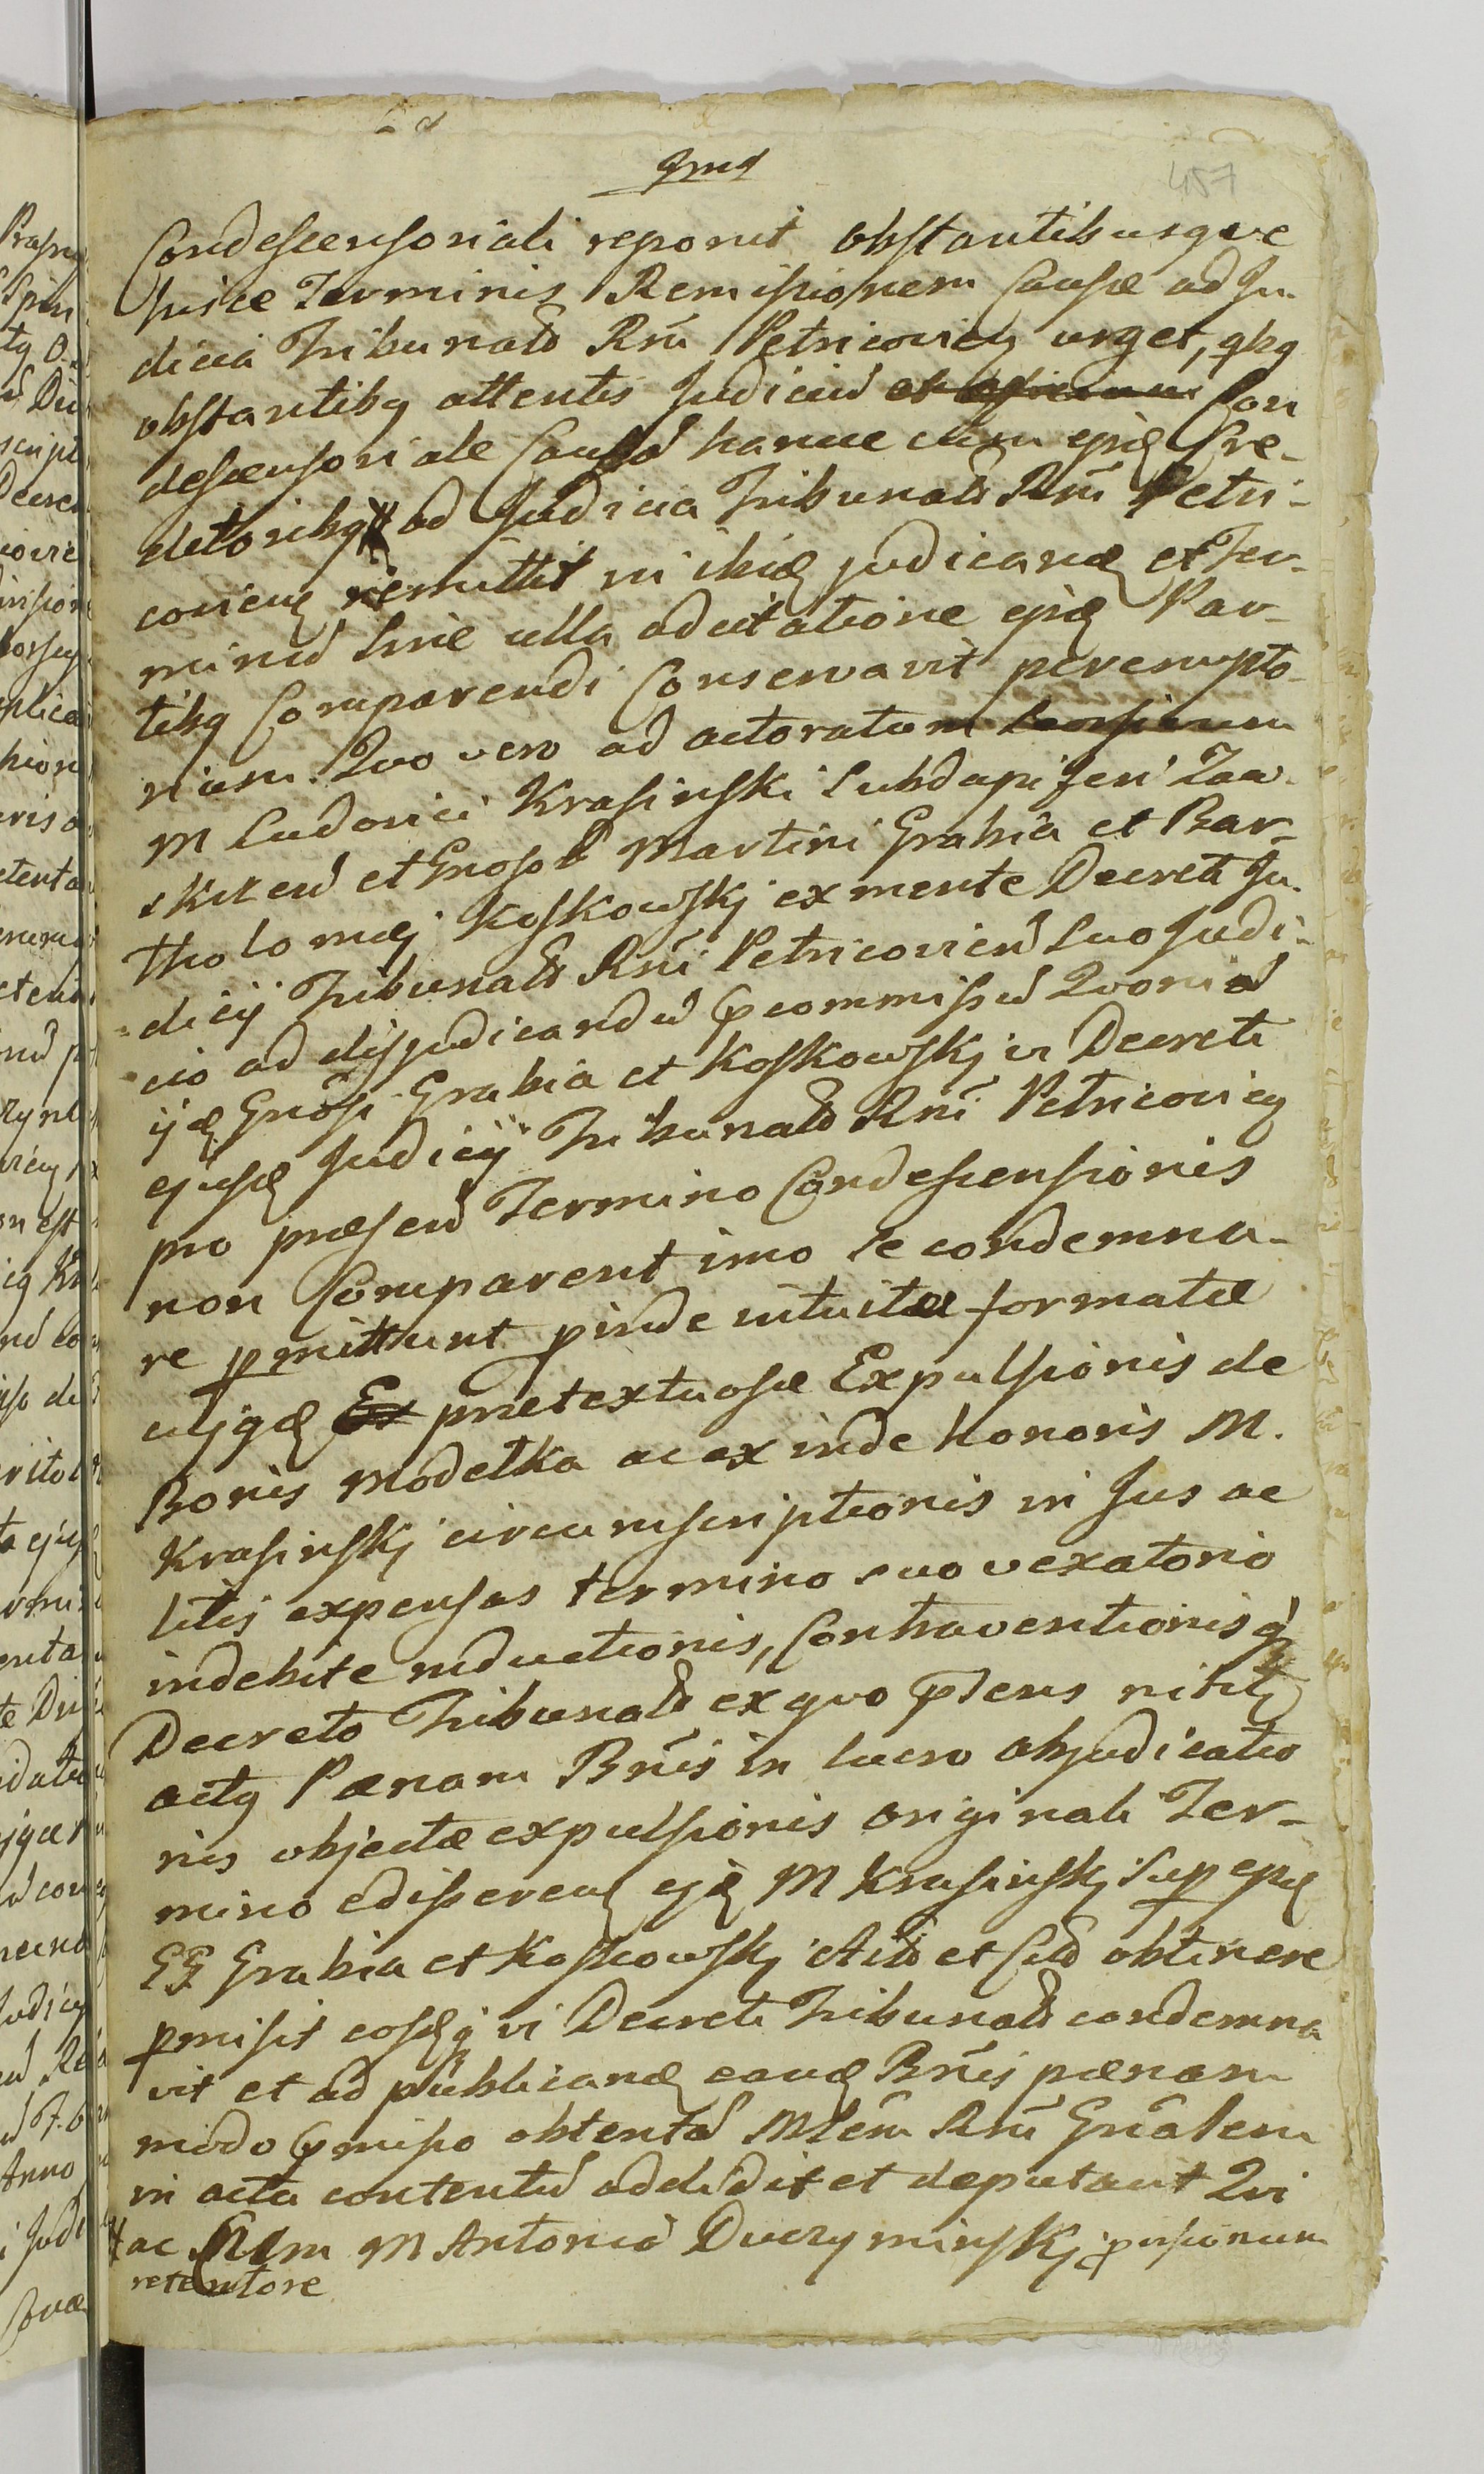 457
Condescensoriali reponit obstantibusque
hisce Terminis Remissionem Causæ ad Ju-
dicia Tribunals Rñi Petricovien urget, qbq
obstantibq attentis Judiciũ Con
descensoriale Causã hance cum ejsd Cre-
ditoribq ad Judicia Tribunals Rñi Petri-
covien remittit in ibid judicand et Ter-
minũ sine ulla adcitatione ejsd Par-
tibq Comparendi Conservavit perempto-
rium. Quo vero ad actoratum
M Ludovici Krasinski Subdapiferi Zaw-
skrzeñ et Gnoso Martini Grabia et Bar-
tholomæj Koskowskj ex mente Decreti Ju-
dicij Tribunals Rñi Petricovieñ suo Judi-
cio ad disjudicandũ commissũ Quoniã
ijd Gnosi Grabia et Koskowskj vi Decreti
ejusd Judicij Tribunals Rñi Petricovien
pro præseñ Termino Condescensionis
non Comparent imo se condemna-
re pmittunt pinde intuitu formatæ
cujqd prætextuosæ Expulsionis de
Bonis Modełka ac ex inde honoris M.
Krasinskj circumscriptionis in Jus ac
litis expensas termino suo vexatorio
indebite inductionis, Contraventionis q
Decreto Tribunals ex quo pteus nititq
actq Pænam Bñis in lucro abjudicatio
nis objectæ expulsionis originali Ter-
mino edisseren ejd M Krasinskj sup ejsd
GG Grabia et Koskowskj et obtinere
pmisit eosdq vi Decreti Tribunals condemna
vit et ad publicand eand Bñis pænam
modo pmisso obtentã Mlem Rñi Gñalem
in acta contentũ addidit et deputavit Qui
ac M Antonio Duczyminskj
retentore